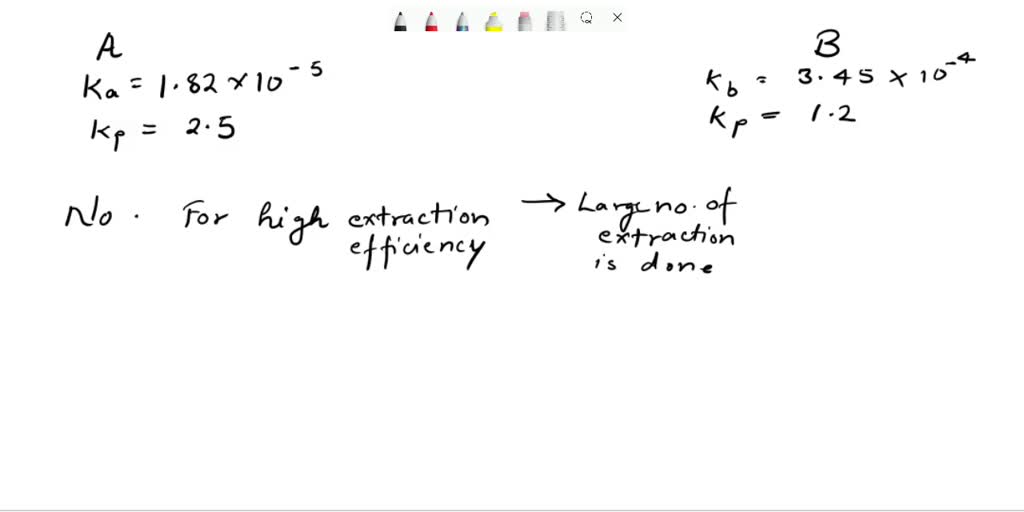 A
Ka = 1.82 × 10⁻⁵
kp = 2.5
B
kb = 3.45 × 10⁻⁴
kp = 1.2
No. For high extraction efficiency → Large no. of extraction is done